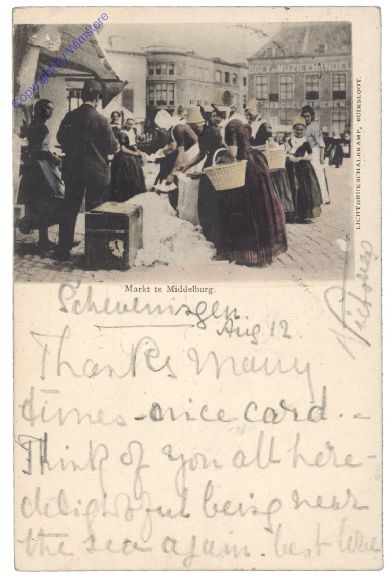 Copyright by Wimstore
BOEK- & MUZIEKHANDEL
BEHANGSELPAPIEREN
LICHTDRUK SCHALEKAMP, BUIKSLOOT.
Markt te Middelburg.
Scheveningen
Aug 12
Thanks many
times - nice card. -
Think of you all here -
delightful being near
the sea again. best love